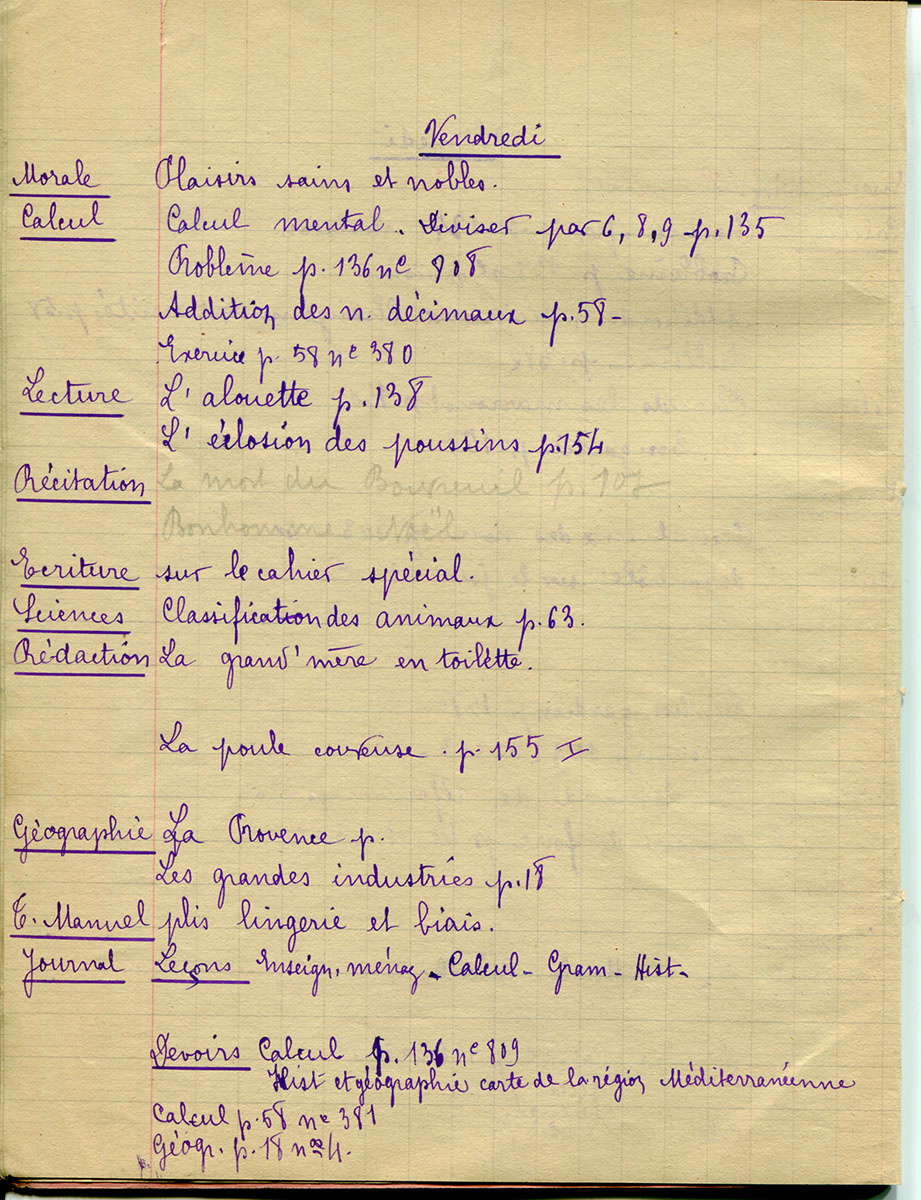 Vendredi
Morale Plaisirs sains et nobles.
Calcul Calcul mental. Diviser par 6, 8, 9 p. 135
Problème p. 136 n° 808
Addition des n. décimaux p. 58-
Exercice p. 58 n° 380
Lecture L'alouette p. 138
L'éclosion des poussins p. 154
Récitation La mort du Bouvreuil p. 107
Bonhomme Noël
Ecriture sur le cahier spécial.
Sciences Classification des animaux p. 63.
Rédaction La grand'mère en toilette.
La poule couveuse. p. 155 I
Géographie La Provence p.
Les grandes industries p. 18
T. Manuel plis lingerie et biais.
Journal Leçons Enseign. ménag - Calcul - Gram - Hist -
Devoirs Calcul p. 136 n° 809
Hist et géographie carte de la région Méditerranéenne
Calcul p. 58 n° 381
Géogr. p. 18 nos 4.